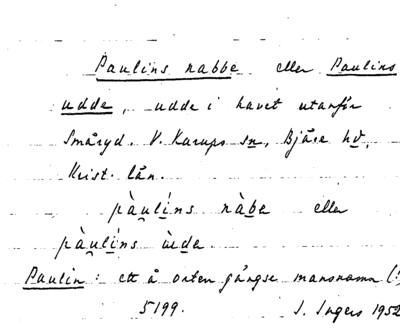 Paulins nabbe eller Paulins
udde, udde i havet utanför
Småryd. V. Karups sn, Bjäre hd,
Krist. län.
pàu̯líns nàbe eller
pàu̯líns ùda.
Paulin: ett å orten gängse mansnamn (!)
5199. I. Ingers 1952